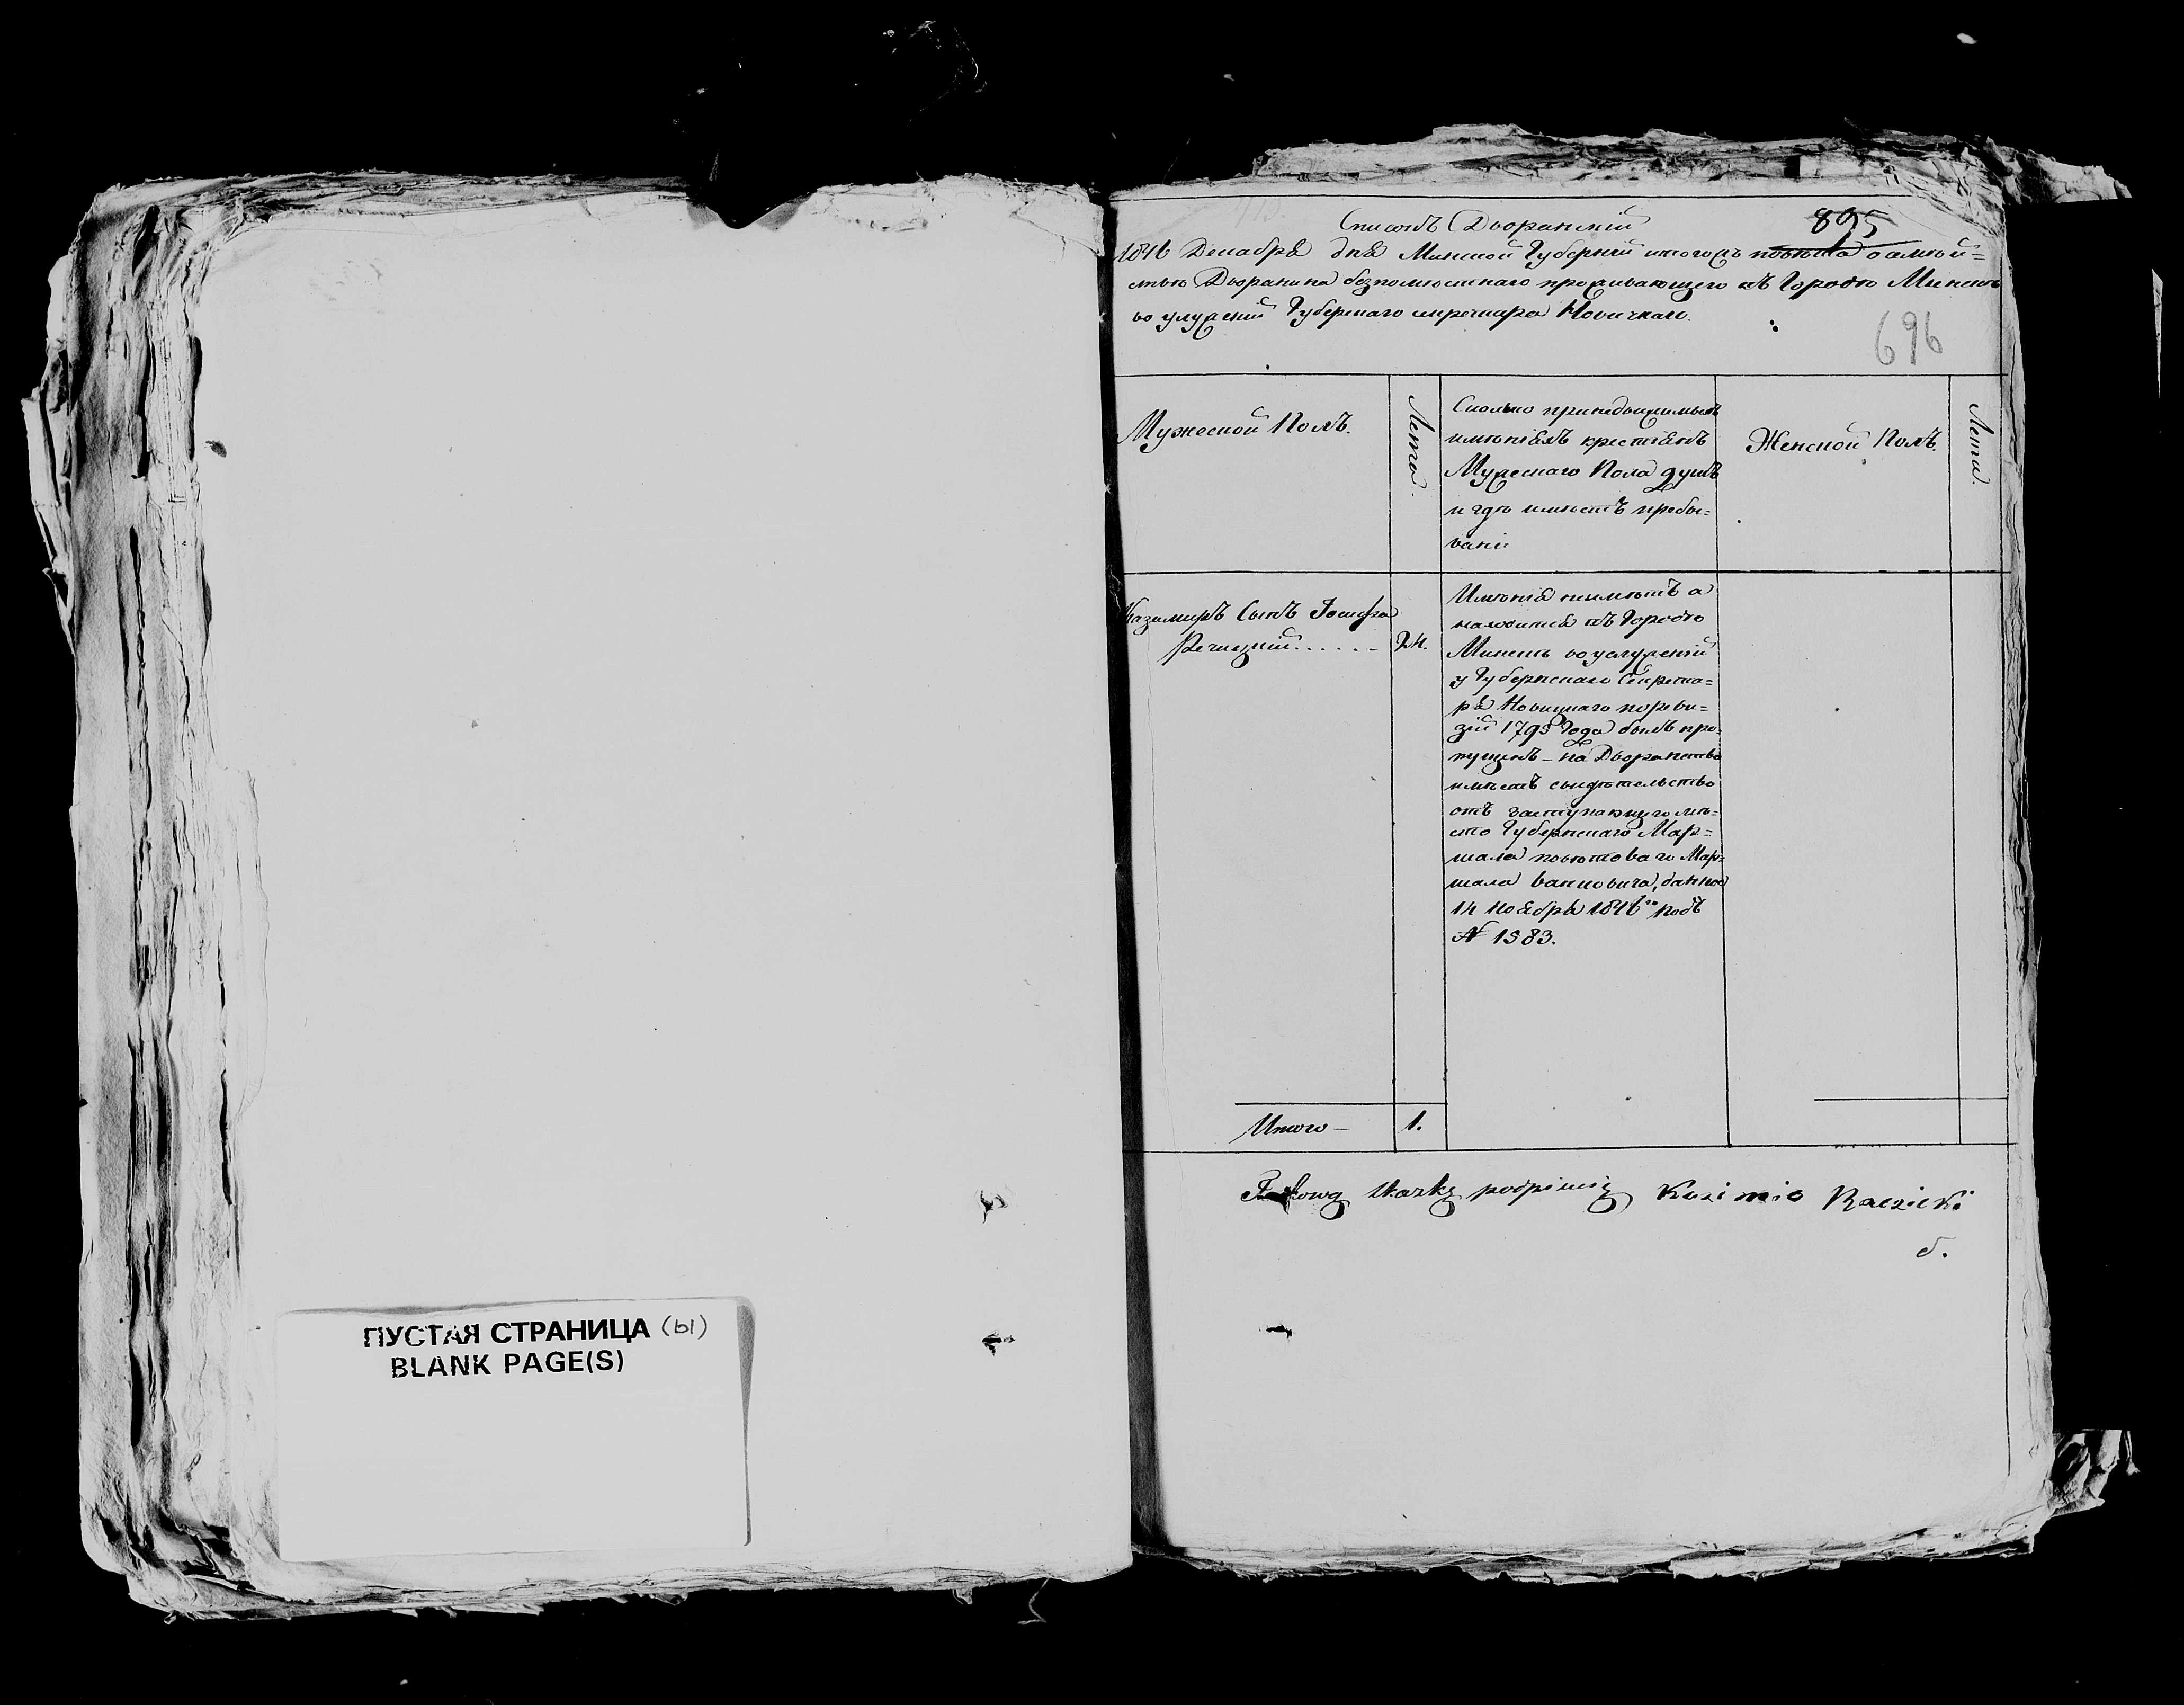 ПУСТАЯ СТРАНИЦА (ы)
BLANK PAGE(S)
895
Списокъ Дворянский
1816 Декабря дня Минской Губернии и того жъ повѣта о фамилій=
Дворянина безпомѣстнаго проживающего въ Городѣ Минскѣ
во услужении Губернаго секретара Новичкаго.
696
Мужеской Полъ.
Лета.
Сколько при недвижимыхъ
имѣнияхъ крестиянъ
Мужескаго Пола душъ
и где имѣетъ пребы=
вание
Женской Полъ.
Лета.
Казимиръ Сынъ Иосифа
Речицкий......
24.
Имѣния неимѣетъ а
находится въ Городѣ
Минскѣ во услужений
у Губернскаго Секрета=
ря Новицкаго по реви=
зий 1795 Года былъ про=
пущенъ - на Дворанство
имѣетъ свидѣтельство
отъ заступающего мѣ=
сто Губернскаго Мар=
шала повѣтоваго Мар=
шала Ванковича, данное
14 Ноября 1816го Подъ
№ 1583.
Итого —
1.
Takową skazkę podpisuię Kazimir Raczicki